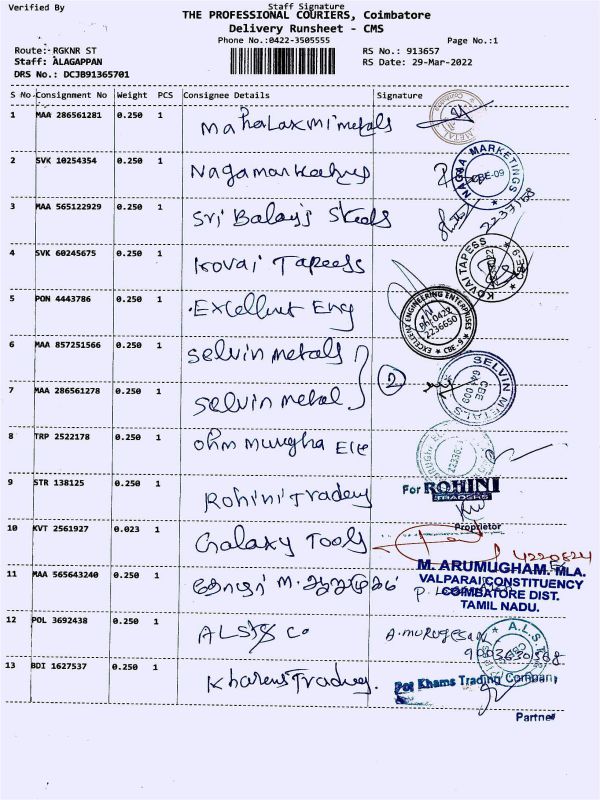 Verified By
Staff Signature
THE PROFESSIONAL COURIERS, Coimbatore
Delivery Runsheet - CMS
Phone No.:0422-3505555
Page No.:1
Route: RGKNR ST
RS No.: 913657
Staff: ALAGAPPAN
RS Date: 29-Mar-2022
DRS No.: DCJB91365701
S No Consignment No Weight PCS Consignee Details Signature
1 MAA 286561281 0.250 1 Mahalaxmi metals
METAL
2 SVK 10254354 0.250 1 Nagamarketing
NAGAA MARKETINGS
CBE-09
3 MAA 565122929 0.250 1 Sri Balaji Steels
4 SVK 60245675 0.250 1 Kovai Tapeess
KOVAI TAPESS CBE-9
5 PON 4443786 0.250 1 Excellent Eng
EXCELLENT ENGINEERING ENTERPRISES
PH:0422
2236650
CBE-9
6 MAA 857251566 0.250 1 Selvin metals
SELVIN METALS
CBE
641 009
7 MAA 286561278 0.250 1 Selvin metal
2
8 TRP 2522178 0.250 1 Ohm murugha Ele
9 STR 138125 0.250 1 Rohini Traders
For ROHINI
TRADERS
Proprietor
10 KVT 2561927 0.023 1 Galaxy Tools
4220824
11 MAA 565643240 0.250 1 M. ஆறுமுகம்
M. ARUMUGHAM. MLA.
VALPARAI CONSTITUENCY
COIMBATORE DIST.
TAMIL NADU.
12 POL 3692438 0.250 1 ALST & Co
A.MURUGESAN
A.L.S.T
13 BDI 1627537 0.250 1 Khams Trading.
For Khams Trading Company
Partner